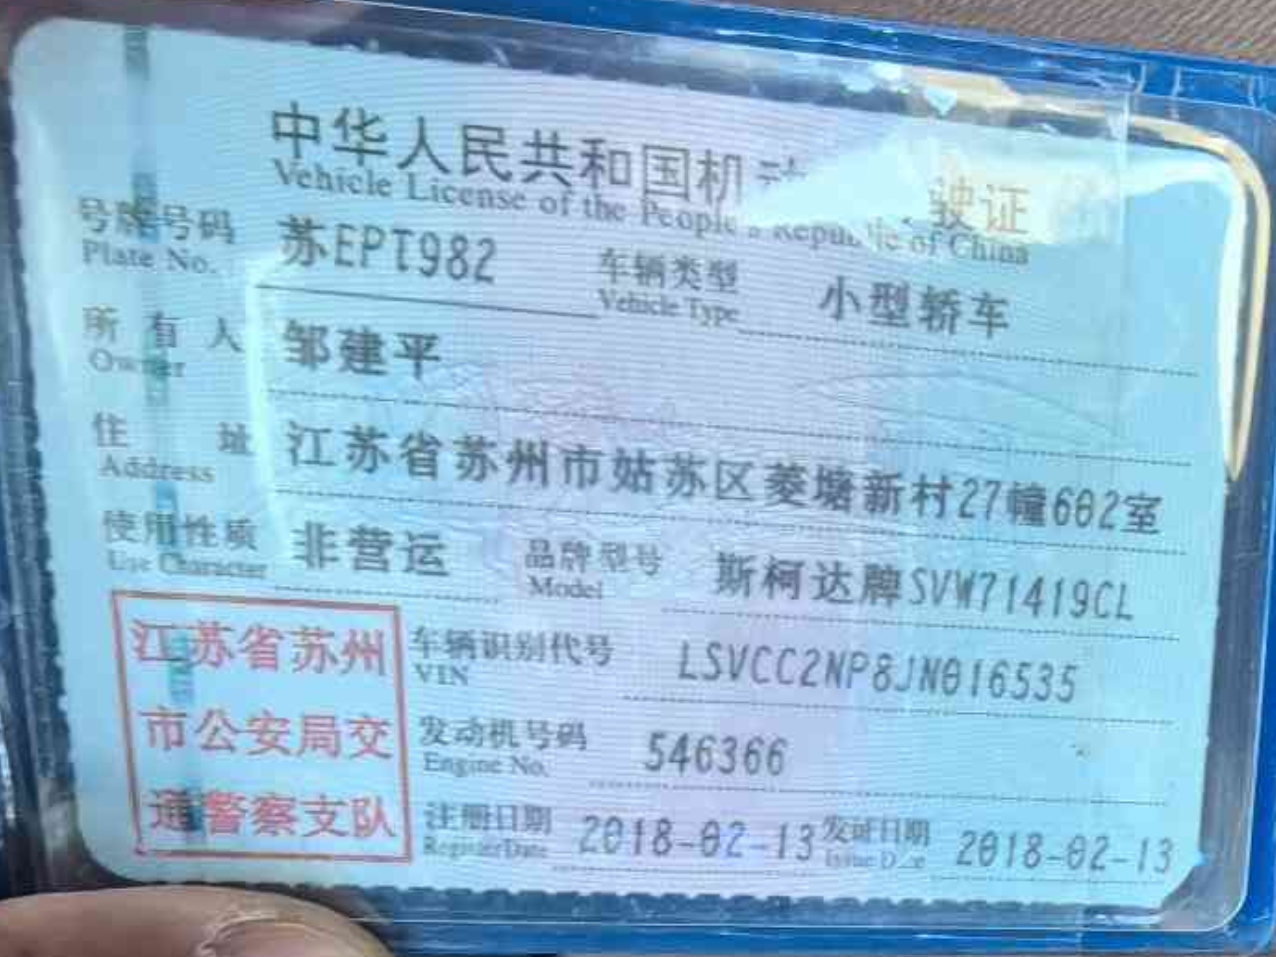 中华人民共和国机动 驶证
Vehicle License of the People's Republic of China
号牌号码 苏EPT982 车辆类型 小型轿车
Plate No. Vehicle Type
所有人 邹建平
Owner
住址 江苏省苏州市姑苏区菱塘新村27幢602室
Address
使用性质 非营运 品牌型号 斯柯达牌SVW71419CL
Use Character Model
江苏省苏州
市公安局交
通警察支队
车辆识别代号 LSVCC2NP8JN016535
VIN
发动机号码 546366
Engine No.
注册日期 2018-02-13 发证日期 2018-02-13
Register Date Issue Date